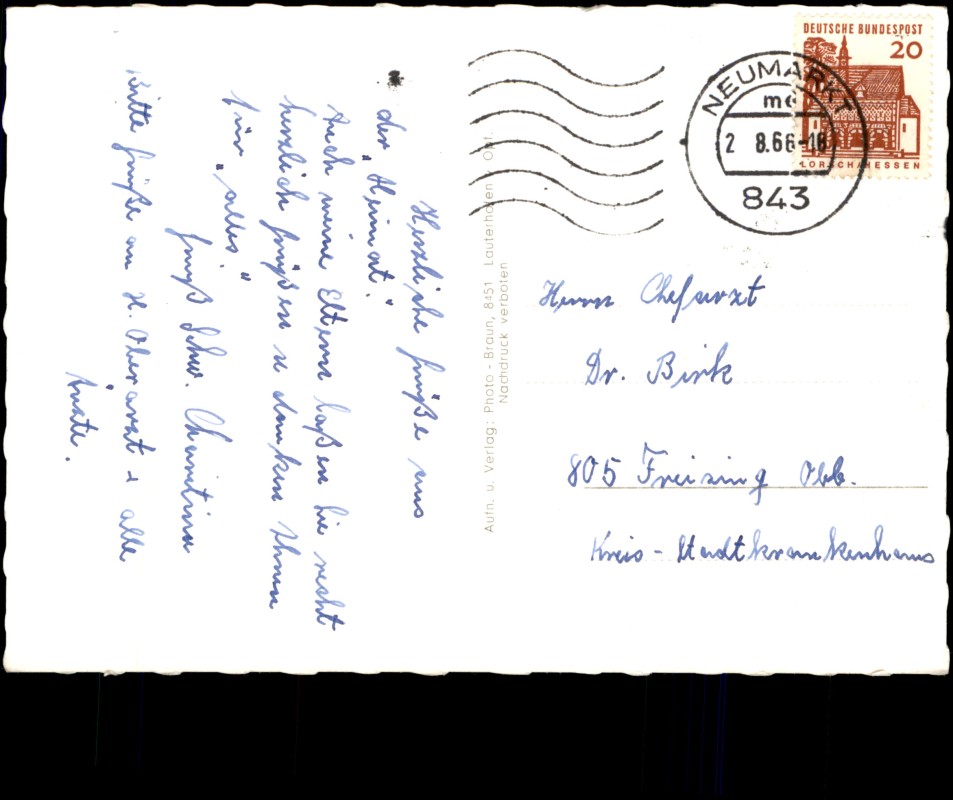 Herzliche Grüße aus
der „Heimat".
Auch meine Eltern laßen Sie recht
herzlich grüßen u danken Ihnen
für „alles".
Gruß Schw. Christina
Bitte Grüße an H. Oberarzt + alle
Ärzte.
Aufn. u. Verlag: Photo - Braun, 8451 Lauterhofen Opf.
Nachdruck verboten
DEUTSCHE BUNDESPOST
20
LORSCH/HESSEN
NEUMARKT
2 8.66-18
843
Herrn Chefarzt
Dr. Birk
805 Freising Obb.
Kreis - Stadtkrankenhaus